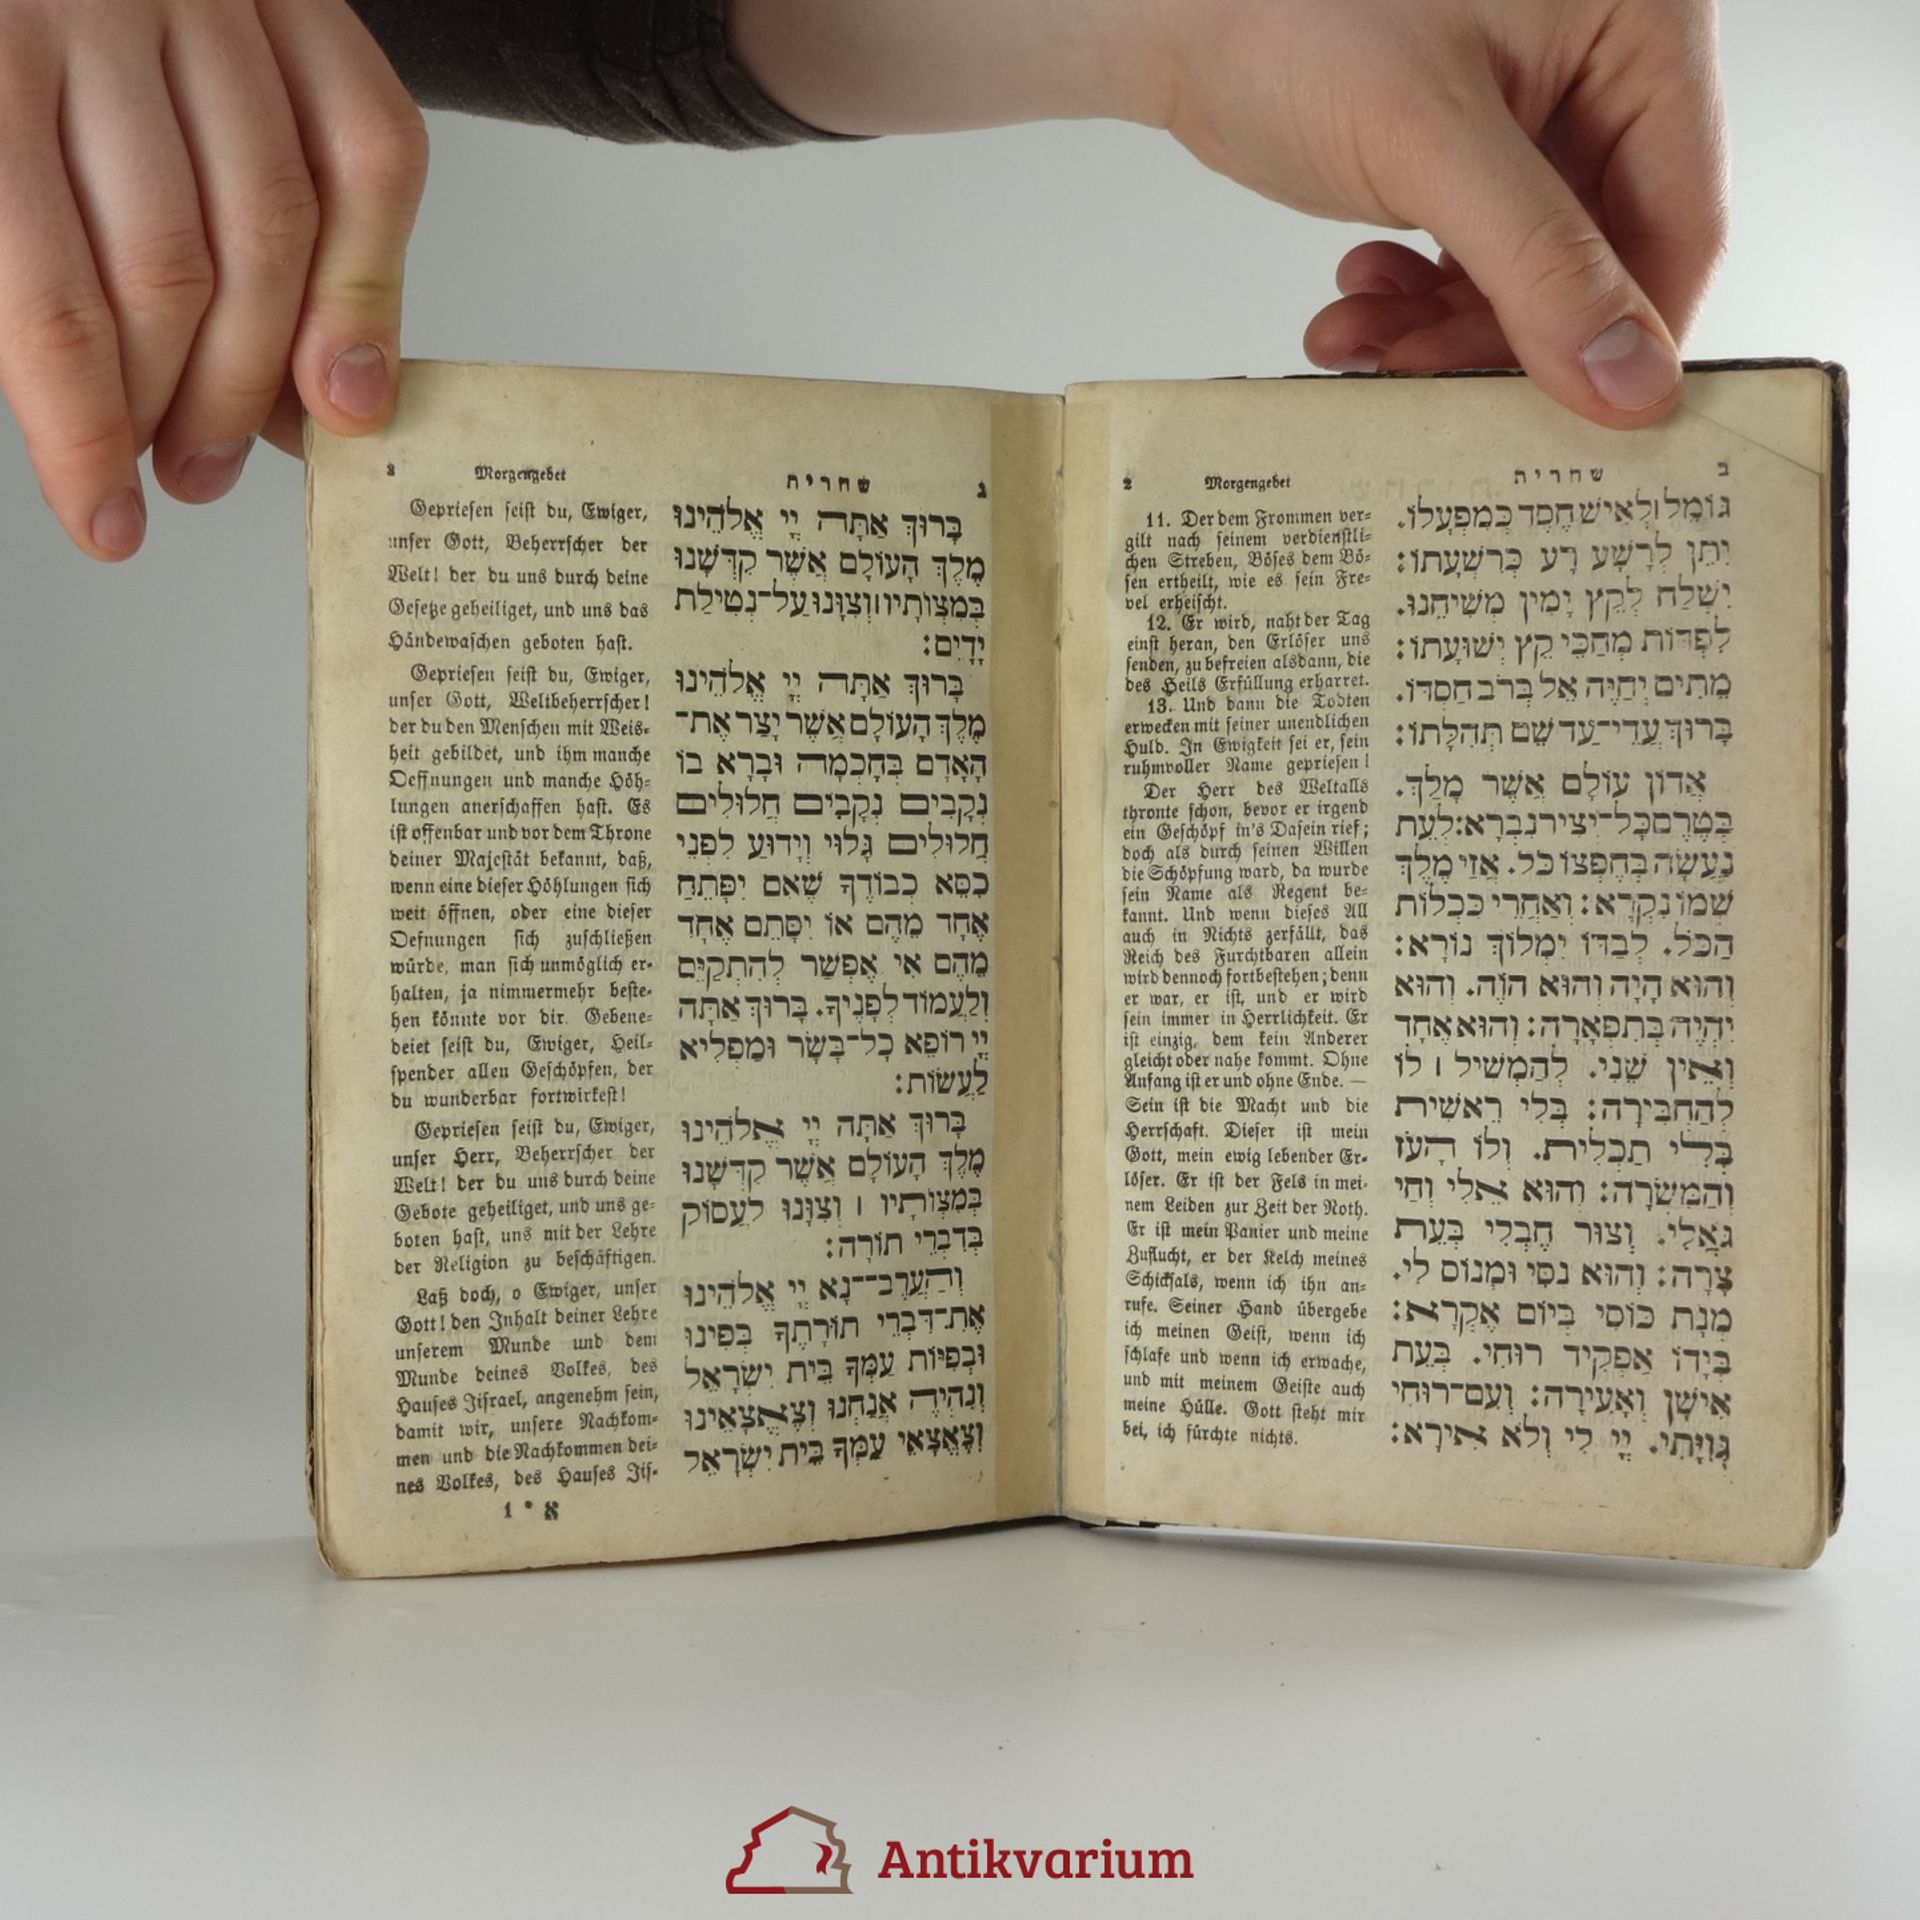 2
Morgengebet
שחרית
ב
11. Der dem Frommen ver-
gilt nach seinem verdienstli-
chen Streben, Böses dem Bö-
sen ertheilt, wie es sein Fre-
vel erheischt.
12. Er wird, naht der Tag
einst heran, den Erlöser uns
senden, zu befreien alsdann, die
des Heils Erfüllung erharret.
13. Und dann die Todten
erwecken mit seiner unendlichen
Huld. In Ewigkeit sei er, sein
ruhmvoller Name gepriesen!
Der Herr des Weltalls
thronte schon, bevor er irgend
ein Geschöpf in's Dasein rief;
doch als durch seinen Willen
die Schöpfung ward, da wurde
sein Name als Regent be-
kannt. Und wenn dieses All
auch in Nichts zerfällt, das
Reich des Furchtbaren allein
wird dennoch fortbestehen; denn
er war, er ist, und er wird
sein immer in Herrlichkeit. Er
ist einzig, dem kein Anderer
gleicht oder nahe kommt. Ohne
Anfang ist er und ohne Ende. —
Sein ist die Macht und die
Herrschaft. Dieser ist mein
Gott, mein ewig lebender Er-
löser. Er ist der Fels in mei-
nem Leiden zur Zeit der Noth.
Er ist mein Panier und meine
Zuflucht, er der Kelch meines
Schicksals, wenn ich ihn an-
rufe. Seiner Hand übergebe
ich meinen Geist, wenn ich
schlafe und wenn ich erwache,
und mit meinem Geiste auch
meine Hülle. Gott steht mir
bei, ich fürchte nichts.
גּוֹמֵל וּלְאִישׁ חֶסֶד כְּמִפְעָלוֹ.
יִתֵּן לְרָשָׁע רָע כְּרִשְׁעָתוֹ:
יִשְׁלַח לְקֵץ יָמִין מְשִׁיחֵנוּ.
לִפְדּוֹת מְחַכֵּי קֵץ יְשׁוּעָתוֹ:
מֵתִים יְחַיֶּה אֵל בְּרֹב חַסְדּוֹ.
בָּרוּךְ עֲדֵי־עַד שֵׁם תְּהִלָּתוֹ:
אֲדוֹן עוֹלָם אֲשֶׁר מָלַךְ.
בְּטֶרֶם כָּל־יְצִיר נִבְרָא: לְעֵת
נַעֲשָׂה בְחֶפְצוֹ כֹּל. אֲזַי מֶלֶךְ
שְׁמוֹ נִקְרָא: וְאַחֲרֵי כִּכְלוֹת
הַכֹּל. לְבַדּוֹ יִמְלוֹךְ נוֹרָא:
וְהוּא הָיָה וְהוּא הוֹוֶה. וְהוּא
יִהְיֶה בְּתִפְאָרָה: וְהוּא אֶחָד
וְאֵין שֵׁנִי. לְהַמְשִׁיל ׀ לוֹ
לְהַחְבִּירָה: בְּלִי רֵאשִׁית
בְּלִי תַכְלִית. וְלוֹ הָעֹז
וְהַמִּשְׂרָה: וְהוּא אֵלִי וְחַי
גֹּאֲלִי. וְצוּר חֶבְלִי בְּעֵת
צָרָה: וְהוּא נִסִּי וּמָנוֹס לִי.
מְנָת כּוֹסִי בְּיוֹם אֶקְרָא:
בְּיָדוֹ אַפְקִיד רוּחִי. בְּעֵת
אִישָׁן וְאָעִירָה: וְעִם־רוּחִי
גְּוִיָּתִי. יְיָ לִי וְלֹא אִירָא:
3
Morgengebet
שחרית
ג
Gepriesen seist du, Ewiger,
unser Gott, Beherrscher der
Welt! der du uns durch deine
Gesetze geheiliget, und uns das
Händewaschen geboten hast.
Gepriesen seist du, Ewiger,
unser Gott, Weltbeherrscher!
der du den Menschen mit Weis-
heit gebildet, und ihm manche
Oeffnungen und manche Höh-
lungen anerschaffen hast. Es
ist offenbar und vor dem Throne
deiner Majestät bekannt, daß,
wenn eine dieser Höhlungen sich
weit öffnen, oder eine dieser
Oefnungen sich zuschließen
würde, man sich unmöglich er-
halten, ja nimmermehr beste-
hen könnte vor dir. Gebene-
deiet seist du, Ewiger, Heil-
spender allen Geschöpfen, der
du wunderbar fortwirkest!
Gepriesen seist du, Ewiger,
unser Herr, Beherrscher der
Welt! der du uns durch deine
Gebote geheiliget, und uns ge-
boten hast, uns mit der Lehre
der Religion zu beschäftigen.
Laß doch, o Ewiger, unser
Gott! den Inhalt deiner Lehre
unserem Munde und dem
Munde deines Volkes, des
Hauses Jisrael, angenehm sein,
damit wir, unsere Nachkom-
men und die Nachkommen dei-
nes Volkes, des Hauses Jis-
בָּרוּךְ אַתָּה יְיָ אֱלֹהֵינוּ
מֶלֶךְ הָעוֹלָם אֲשֶׁר קִדְּשָׁנוּ
בְּמִצְוֹתָיו ׀ וְצִוָּנוּ עַל־נְטִילַת
יָדָיִם:
בָּרוּךְ אַתָּה יְיָ אֱלֹהֵינוּ
מֶלֶךְ הָעוֹלָם אֲשֶׁר יָצַר אֶת־
הָאָדָם בְּחָכְמָה וּבָרָא בוֹ
נְקָבִים נְקָבִים חֲלוּלִים
חֲלוּלִים גָּלוּי וְיָדוּעַ לִפְנֵי
כִסֵּא כְבוֹדֶךָ שֶׁאִם יִפָּתֵחַ
אֶחָד מֵהֶם אוֹ יִסָּתֵם אֶחָד
מֵהֶם אִי אֶפְשַׁר לְהִתְקַיֵּם
וְלַעֲמוֹד לְפָנֶיךָ. בָּרוּךְ אַתָּה
יְיָ רוֹפֵא כָל־בָּשָׂר וּמַפְלִיא
לַעֲשׂוֹת:
בָּרוּךְ אַתָּה יְיָ אֱלֹהֵינוּ
מֶלֶךְ הָעוֹלָם אֲשֶׁר קִדְּשָׁנוּ
בְּמִצְוֹתָיו ׀ וְצִוָּנוּ לַעֲסוֹק
בְּדִבְרֵי תוֹרָה:
וְהַעֲרֶב־־נָא יְיָ אֱלֹהֵינוּ
אֶת־דִּבְרֵי תוֹרָתְךָ בְּפִינוּ
וּבְפִיּוֹת עַמְּךָ בֵּית יִשְׂרָאֵל
וְנִהְיֶה אֲנַחְנוּ וְצֶאֱצָאֵינוּ
וְצֶאֱצָאֵי עַמְּךָ בֵּית יִשְׂרָאֵל
1 * א
Antikvarium